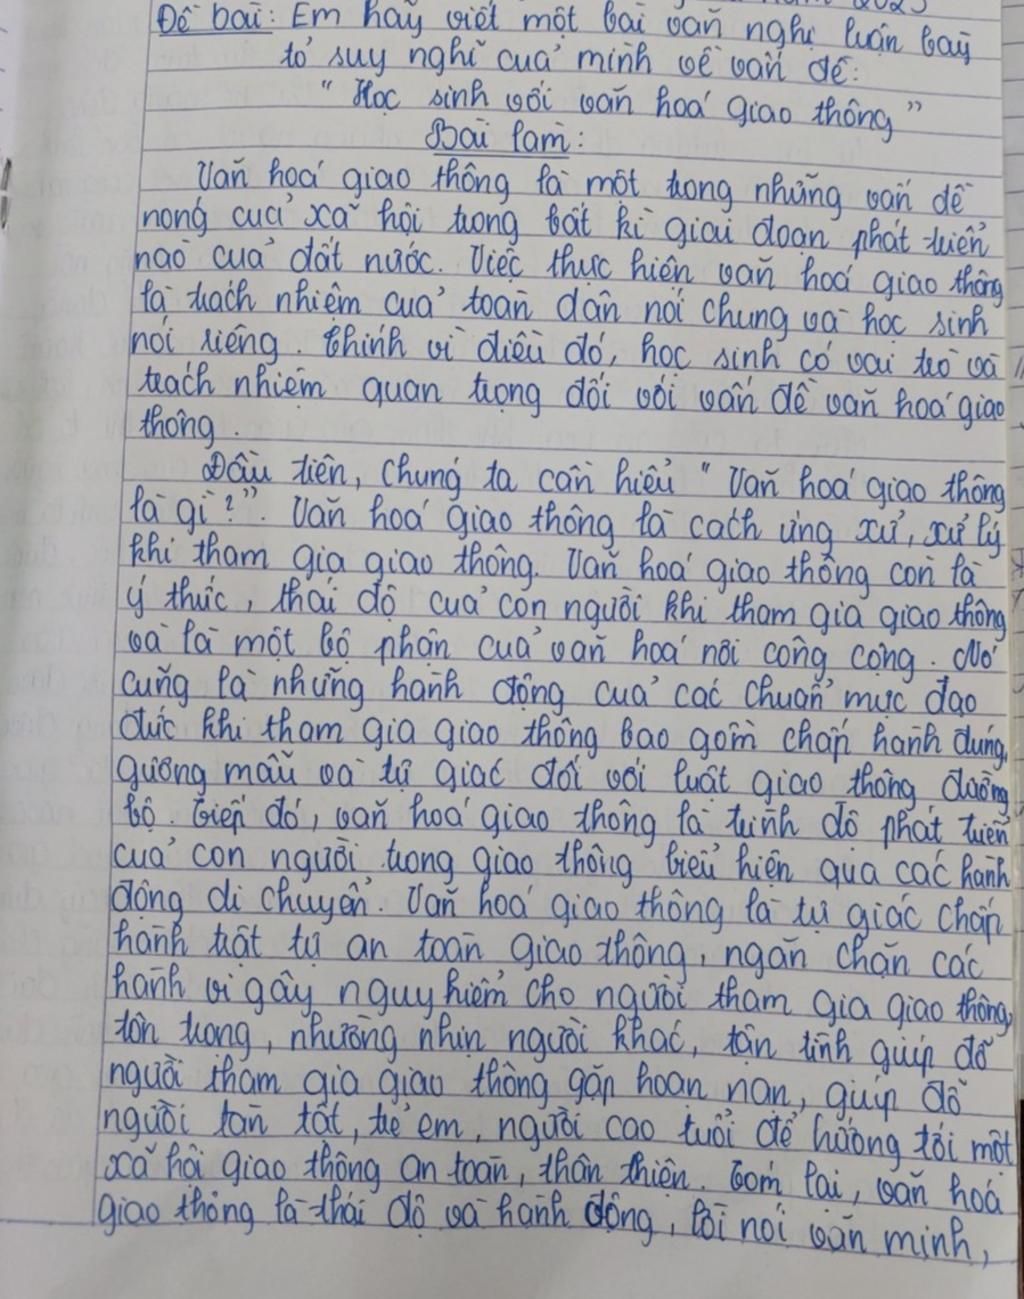 2023
Đề bài: Em hãy viết một bài văn nghị luận bày
tỏ suy nghĩ của mình về vấn đề:
"Học sinh với văn hoá giao thông"
Bài làm:
Văn hoá giao thông là một trong những vấn đề
nóng của xã hội trong bất kì giai đoạn phát triển
nào của đất nước. Việc thực hiện văn hoá giao thông
là trách nhiệm của toàn dân nói chung và học sinh
nói riêng. Chính vì điều đó, học sinh có vai trò và
trách nhiệm quan trọng đối với vấn đề văn hoá giao
thông.
Đầu tiên, chúng ta cần hiểu "Văn hoá giao thông
là gì?". Văn hoá giao thông là cách ứng xử, xử lý
khi tham gia giao thông. Văn hoá giao thông còn là
ý thức, thái độ của con người khi tham gia giao thông
và là một bộ phận của văn hoá nơi công cộng. Nó
cũng là những hành động của các chuẩn mực đạo
đức khi tham gia giao thông bao gồm chấp hành đúng,
gương mẫu và tự giác đối với luật giao thông đường
bộ. Tiếp đó, văn hoá giao thông là trình độ phát triển
của con người trong giao thông biểu hiện qua các hành
động di chuyển. Văn hoá giao thông là tự giác chấp
hành trật tự an toàn giao thông, ngăn chặn các
hành vi gây nguy hiểm cho người tham gia giao thông,
tôn trọng, nhường nhịn người khác, tận tình giúp đỡ
người tham gia giao thông gặp hoạn nạn, giúp đỡ
người tàn tật, trẻ em, người cao tuổi để hướng tới một
xã hội giao thông an toàn, thân thiện. Tóm lại, văn hoá
giao thông là thái độ và hành động, lời nói văn minh,